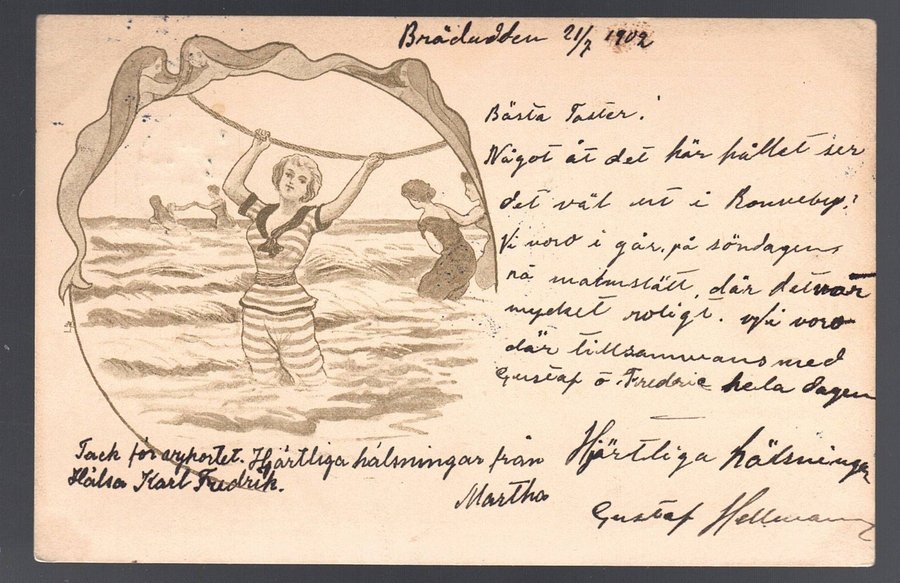 Brädudden 21/7 1902
Bästa Faster!
Något åt det här hållet ser
det väl ut i Ronneby?
Vi voro i går, på söndagen,
på malmslätt, där det var
mycket roligt. Vi voro
där tillsammans med
Gustaf o. Fredric hela dagen
Hjärtliga hälsningar
Gustaf Hellman
Tack för vykortet. Hjärtliga hälsningar från
Hälsa Karl Fredrik.
Martha